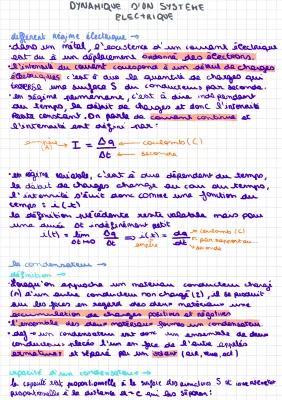 DYNAMIQUE D'UN SYSTEME
ELECTRIQUE
différent régime électrique →
• dans un métal, l'existence d'un courant électrique
est dû à un déplacement ordonné des électrons.
• l'intensité du courant correspond à un débit de charges
électriques : c'est à dire la quantité de charges qui
traverse une surface S du conducteur par seconde.
• en régime permanent, c'est à dire indépendant
du temps, le débit de charges et donc l'intensité
reste constant. On parle de courant continue et
l'intensité est défini par:
ampère (A) I = Δq / Δt coulombs (C)
seconde
• en régime variable, c'est à dire dépendant du temps,
le débit de charges change au cours du temps,
l'intensité s'écrit donc comme une fonction du
temps : i(t)
la définition précédente reste valable mais pour
une durée Δt
i(t) = lim Δq / Δt ⇒ i(t) = dq / dt coulombs (C)
Δt→0 ampère par rapport au
seconde
le condensateur →
définition →
• lorsqu'on approche un matériau conducteur chargé
(A) d'un autre conducteur non chargé (B), il se produit
sur les faces en regard des deux matériaux une
accumulation de charges positives et négatives
• l'ensemble des deux matériaux forme un condensateur.
• def → un condensateur est donc un ensemble de deux
conducteurs placés l'un en face de l'autre appelés
armatures et séparé par un isolant (air,
capacité d'un condensateur →
la capacité est proportionnelle à la surface des armatures S et inversement
proportionnelle à la distance d = e qui les sépare: